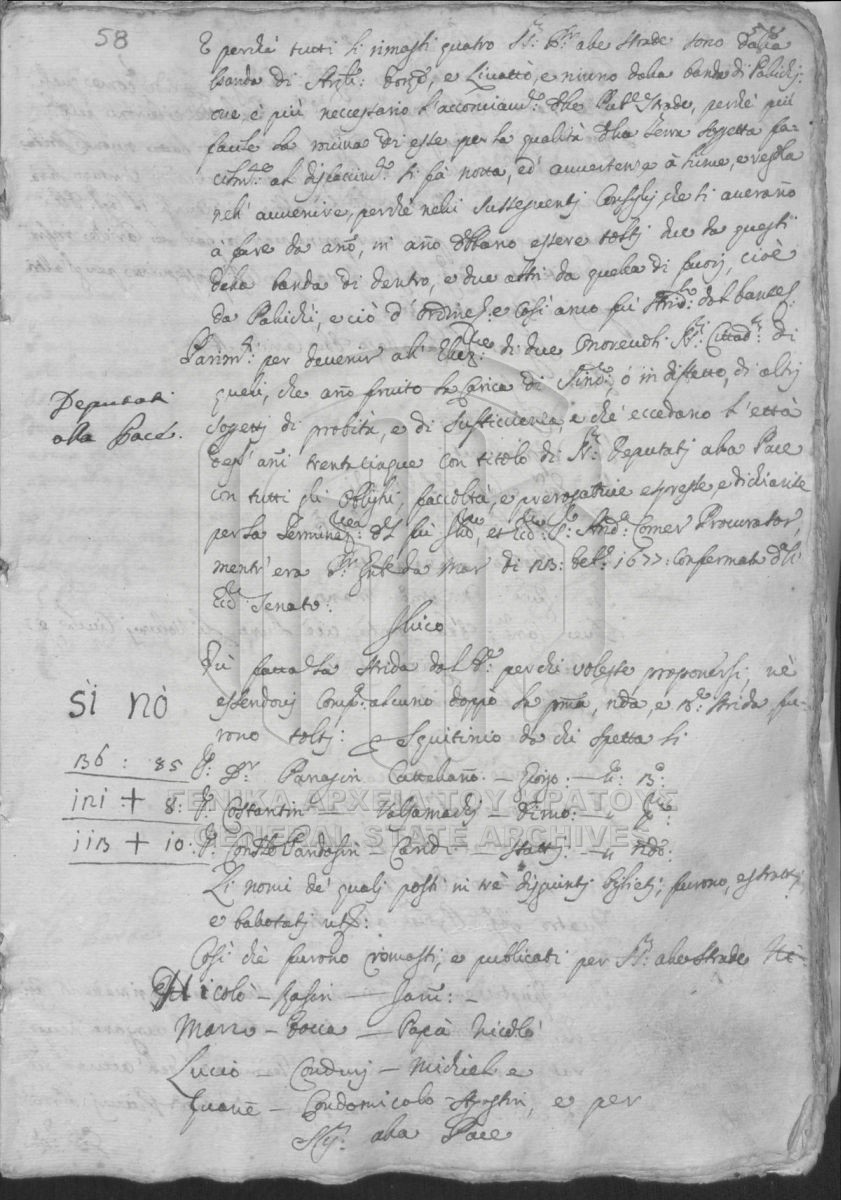 58
E perche tutti li rimasti quatro SS:ri Pr: alle strade sono dalla
banda di Arg:li: borgo, e Livattò, e niuno dalla banda di Palichi,
ove è più neccessario l'acconciam:to delle Pub:e strade, perche più
facile la rovina di esse per la qualità della terra sogetta fa-
cilm:te al disfaccim:to si fà notta, ed' avvertenza à lume, e regola
nell' avvenire, perche nelli susseguenti Consiglij che si averaño
à fare da año, in año debbano essere tolti due da questi
della banda di dentro, e due altri da quella di fuori, cioè
da Palichi, e ciò d'ordine S:E: e Così anco fu strid: dal bancc:
Parim:ti per devenir all' Elez:ne di due Onorevoli SS:ri Cittad:i di
Deputati
alla Pace.
quelli, che año fruito la Carica di Sind:ci ò in diffetto, di altri
sogetti di probità, e di sufficienza, e che eccedano l'età
degl' anni trentacinque con titolo di SS:ri Deputati alla Pace
con tutti gli oblighi, facoltà, e prerogative espresse, e dichiarite
per la Terminaz: del fù Ill:mo, et Ecc:mo S: And:a Corner Procurator,
mentr'era da Mar di 1677: confermata dall'
Ecc:mo Senato:
Fù facca la strida dal perche voleste proponersi, nè
essendovi Comp: alcuno doppo la p:ma, 2da, e 3: strida fu-
rono tolti: Squitinio da chi spetta li
SÌ NÒ
136 : 85 S: Dr Panagin Cattellano – Zorzo: – 3:
121 + 8: S: Costantin – Valsamachi – Dimo: –
113 + 10: S: Const:o Pandasin – Cand: – Statti: – 2do:
Li nomi de quali posti in trè disgiunti biglieti, furono, estratti,
e ballotati ut S:a:
Così che furono rimasti, e publicati per SS:ri alle strade li
Nicolò – – Janni: –
Marco – Zocca – Papà Nicolò
Lucio – Conduri – Michiel e
Zuanne – Condomicolo Agostin, e per
SS:ri alla Pace
ΓΕΝΙΚΑ ΑΡΧΕΙΑ ΤΟΥ ΚΡΑΤΟΥΣ
GENERAL STATE ARCHIVES